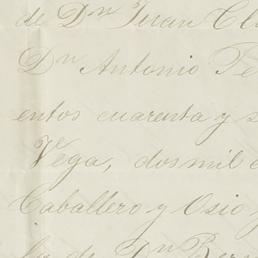 de Dn Juan
Dn Antonio
entos cuarenta y
Vega, dos mil
Caballero y Osio
de Dn